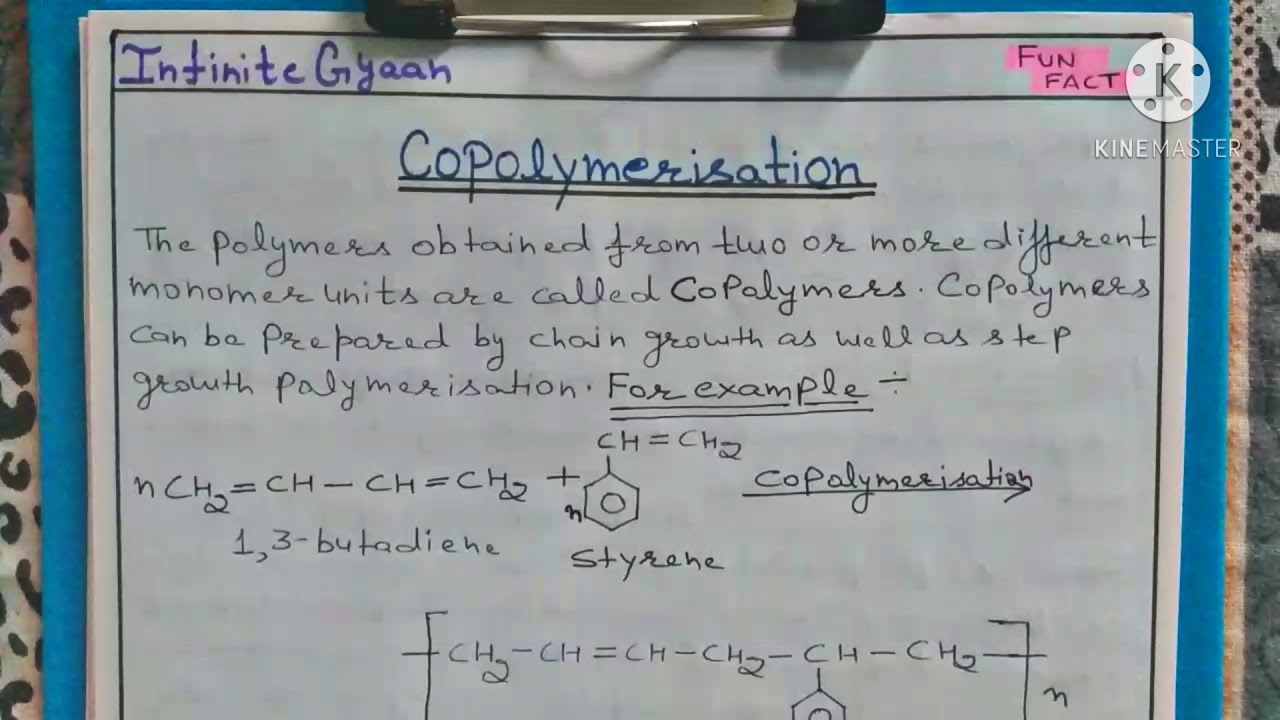 Infinite Gyaan
FUN
FACT
K
KINEMASTER
Copolymerisation
The polymers obtained from two or more different
monomer units are called Copolymers. Copolymers
can be prepared by chain growth as well as step
growth polymerisation. For example ÷
CH=CH₂
nCH₂=CH–CH=CH₂ + n
Copolymerisation
1,3-butadiene
Styrene
[CH₂–CH=CH–CH₂–CH–CH₂]n